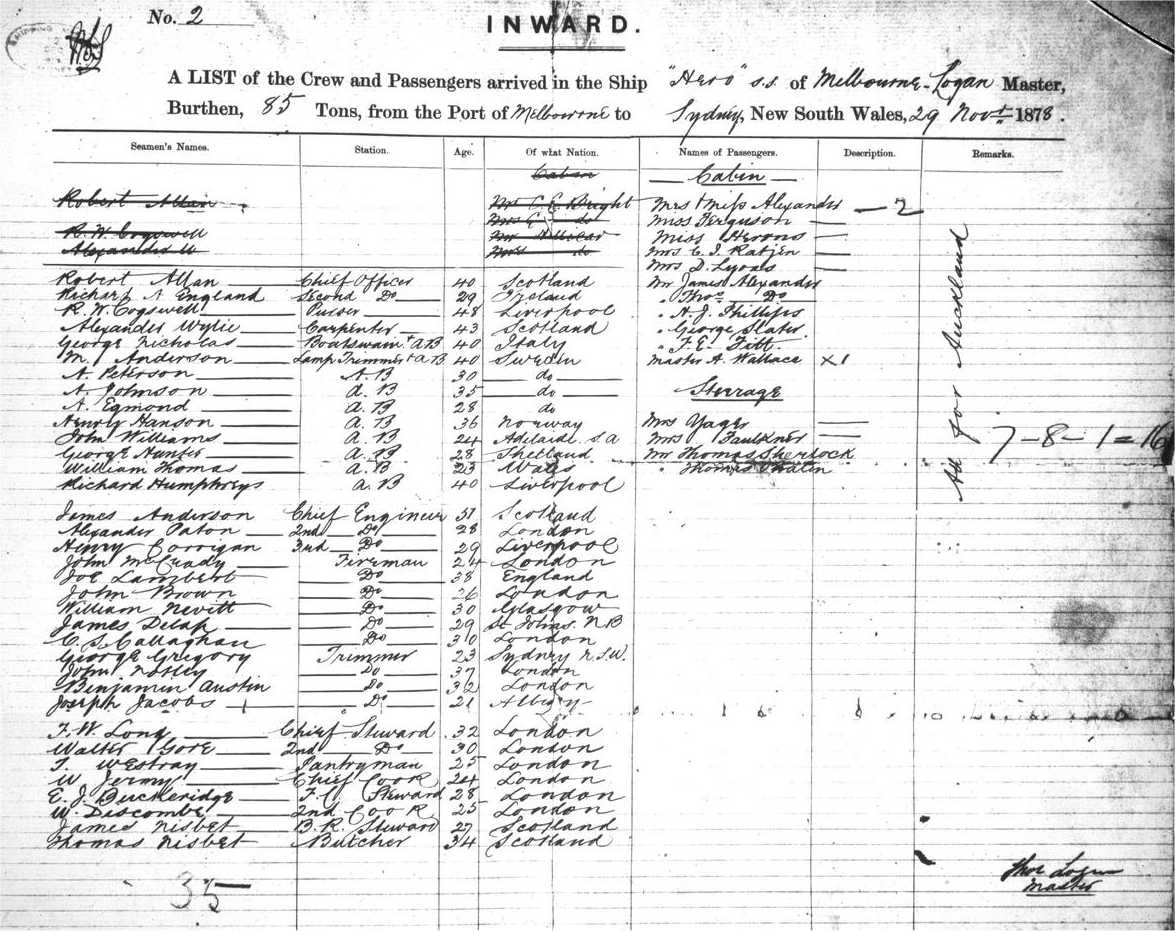 No. 2
INWARD.
A LIST of the Crew and Passengers arrived in the Ship "Hero" s.s. of Melbourne - Logan Master,
Burthen, 85 Tons, from the Port of Melbourne to Sydney, New South Wales, 29 Novr 1878.
Seamen's Names. Station. Age. Of what Nation. Names of Passengers. Description. Remarks.
Cabin Cabin
Robert Allan Mr C. E. Bright Mrs & Miss Alexander 2
Mrs do Miss Ferguson
R. W. Cogswell Mr Miss Herons
Alexander W Mrs do Mrs C. J. Ratjen
Mrs D. Lyons
Robert Allan Chief Officer 40 Scotland Mr James Alexander
Richard N England Second Do 29 Ireland " Thos Do
R. W. Cogswell Purser 48 Liverpool " A. J. Phillips
Alexander Wylie Carpenter 43 Scotland " George Slater
George Nicholas Boatswain & AB 40 Italy " F. E. Fitt
M. Anderson Lamp Trimmer & AB 40 Sweden Master A. Wallace X1
A. Peterson A.B 30 do
A. Johnson A.B 35 do Steerage
A. Egmond A.B 28 do
Henry Hanson A.B 36 Norway Mrs Yager
John Williams A.B 24 Adelaide S.A Mrs Faulkner
George Hunter A.B 28 Shetland Mr Thomas Sherlock
William Thomas A.B 23 Wales " Thomas
Richard Humphreys A.B 40 Liverpool
All for Auckland
7-8-1=16
James Anderson Chief Engineer 51 Scotland
Alexander Paton 2nd Do 28 London
Henry Corrigan 3rd Do 29 Liverpool
John McCrady Fireman 24 London
Joe Lambert Do 38 England
John Brown Do 26 London
William Nevitt Do 30 Glasgow
James Delap Do 29 St Johns N.B
C. S. Callaghan Do 30 London
George Gregory Trimmer 23 Sydney N.S.W.
John Notley Do 37 London
Benjamin Austin Do 32 London
Joseph Jacobs Do 21 Albury
F. W. Long Chief Steward 32 London
Walter Gore 2nd Do 30 London
T. Westray Pantryman 25 London
W Jermy Chief Cook 24 London
E. J. Buckeridge F.C. Steward 28 London
W. Discombe 2nd Cook 25 London
James Nisbet B.R. Steward 27 Scotland
Thomas Nisbet Butcher 34 Scotland
35
Thos Logan
Master